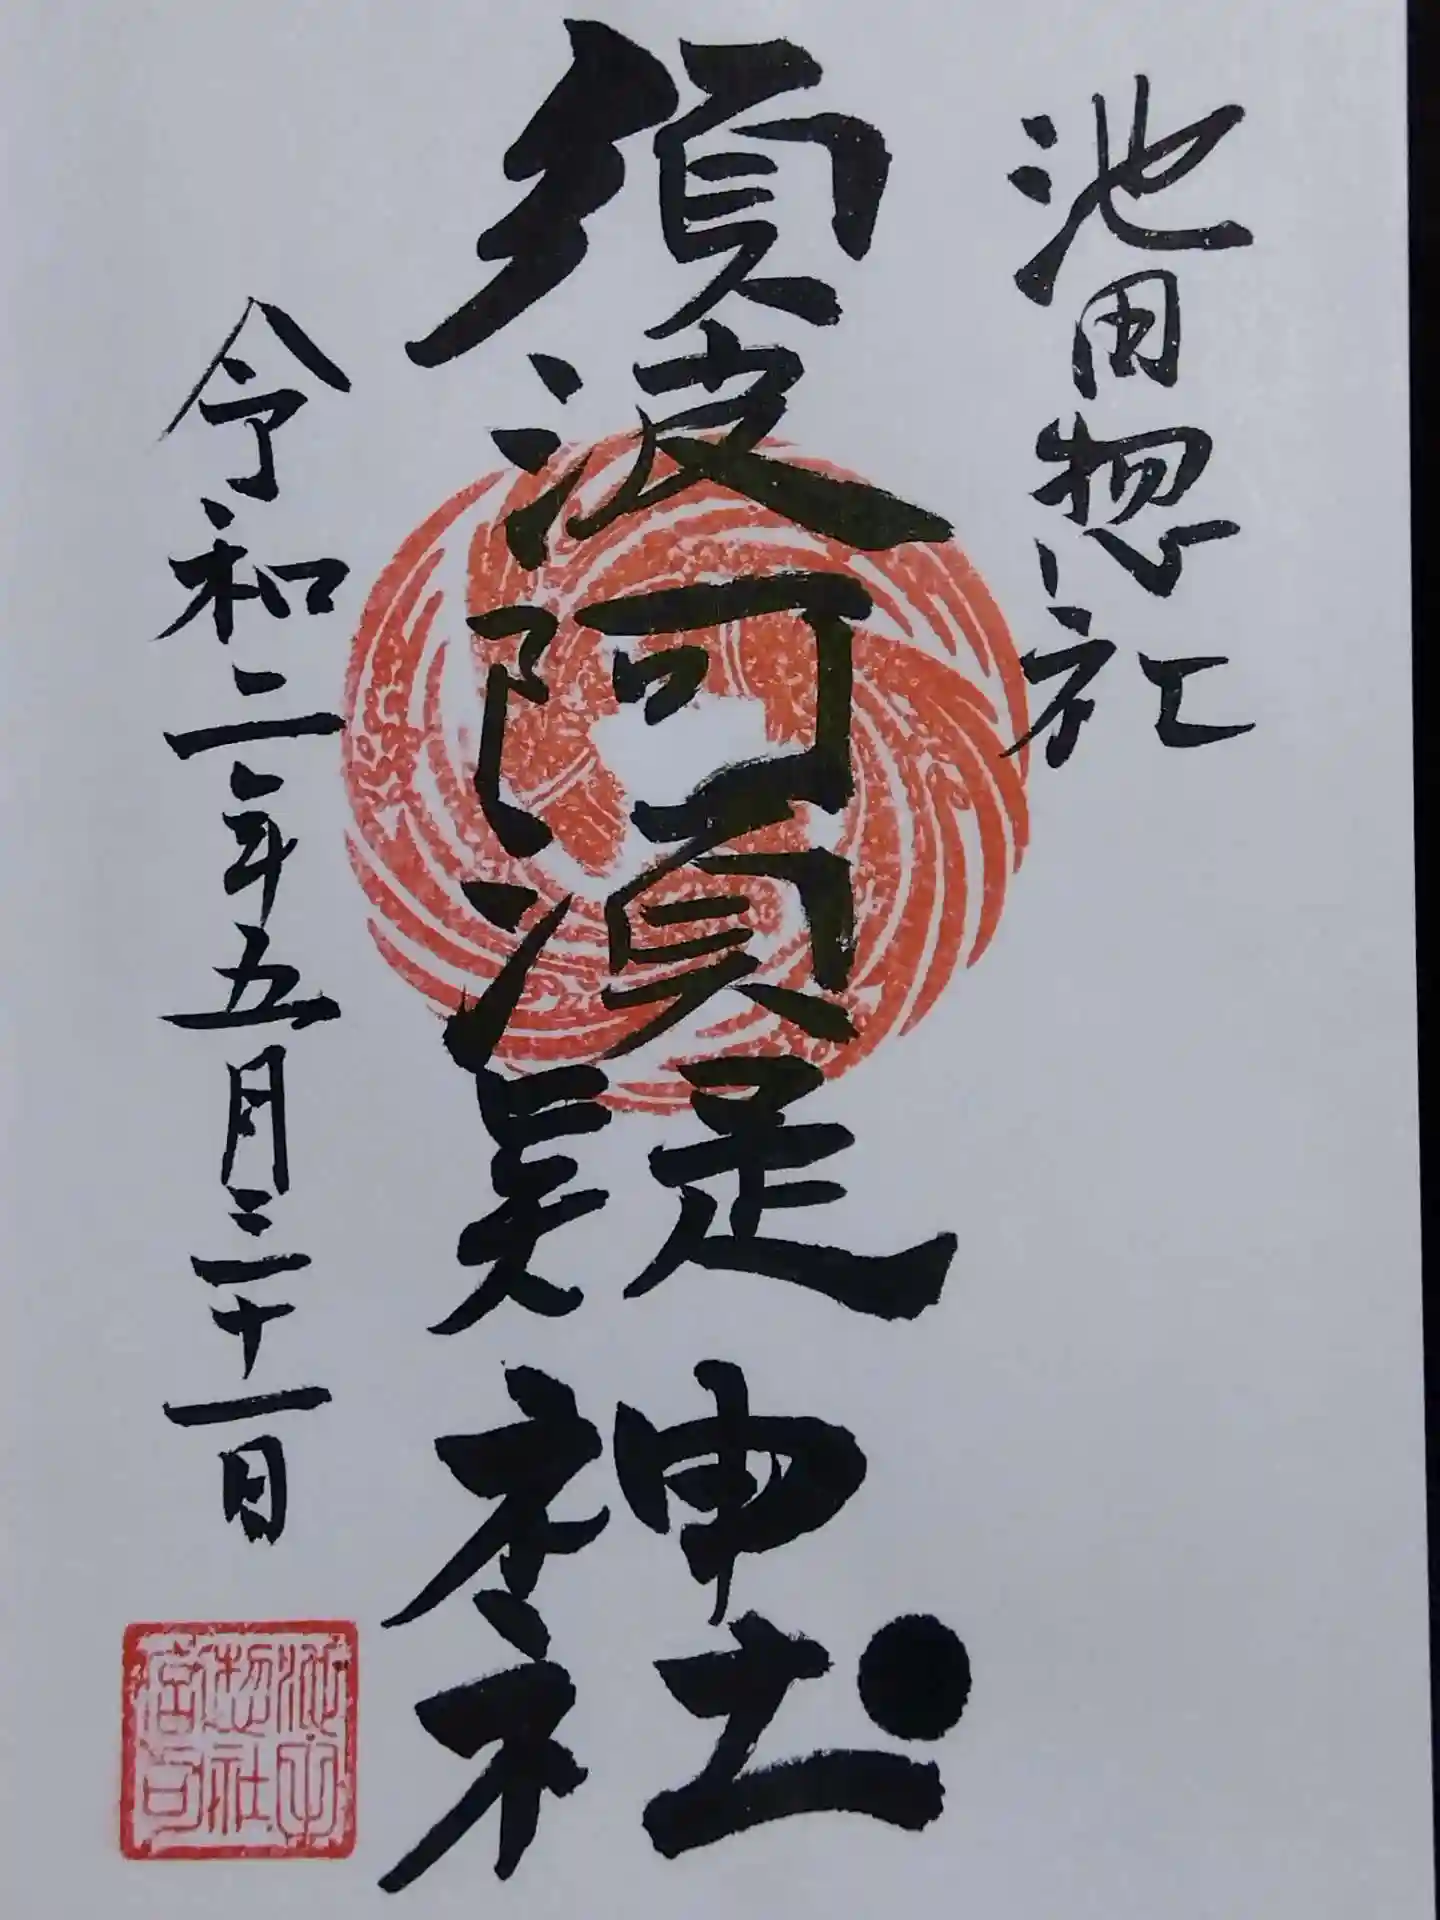 池田惣社
須波阿湏疑神社
令和二年五月三十一日
池田
惣社
宮司